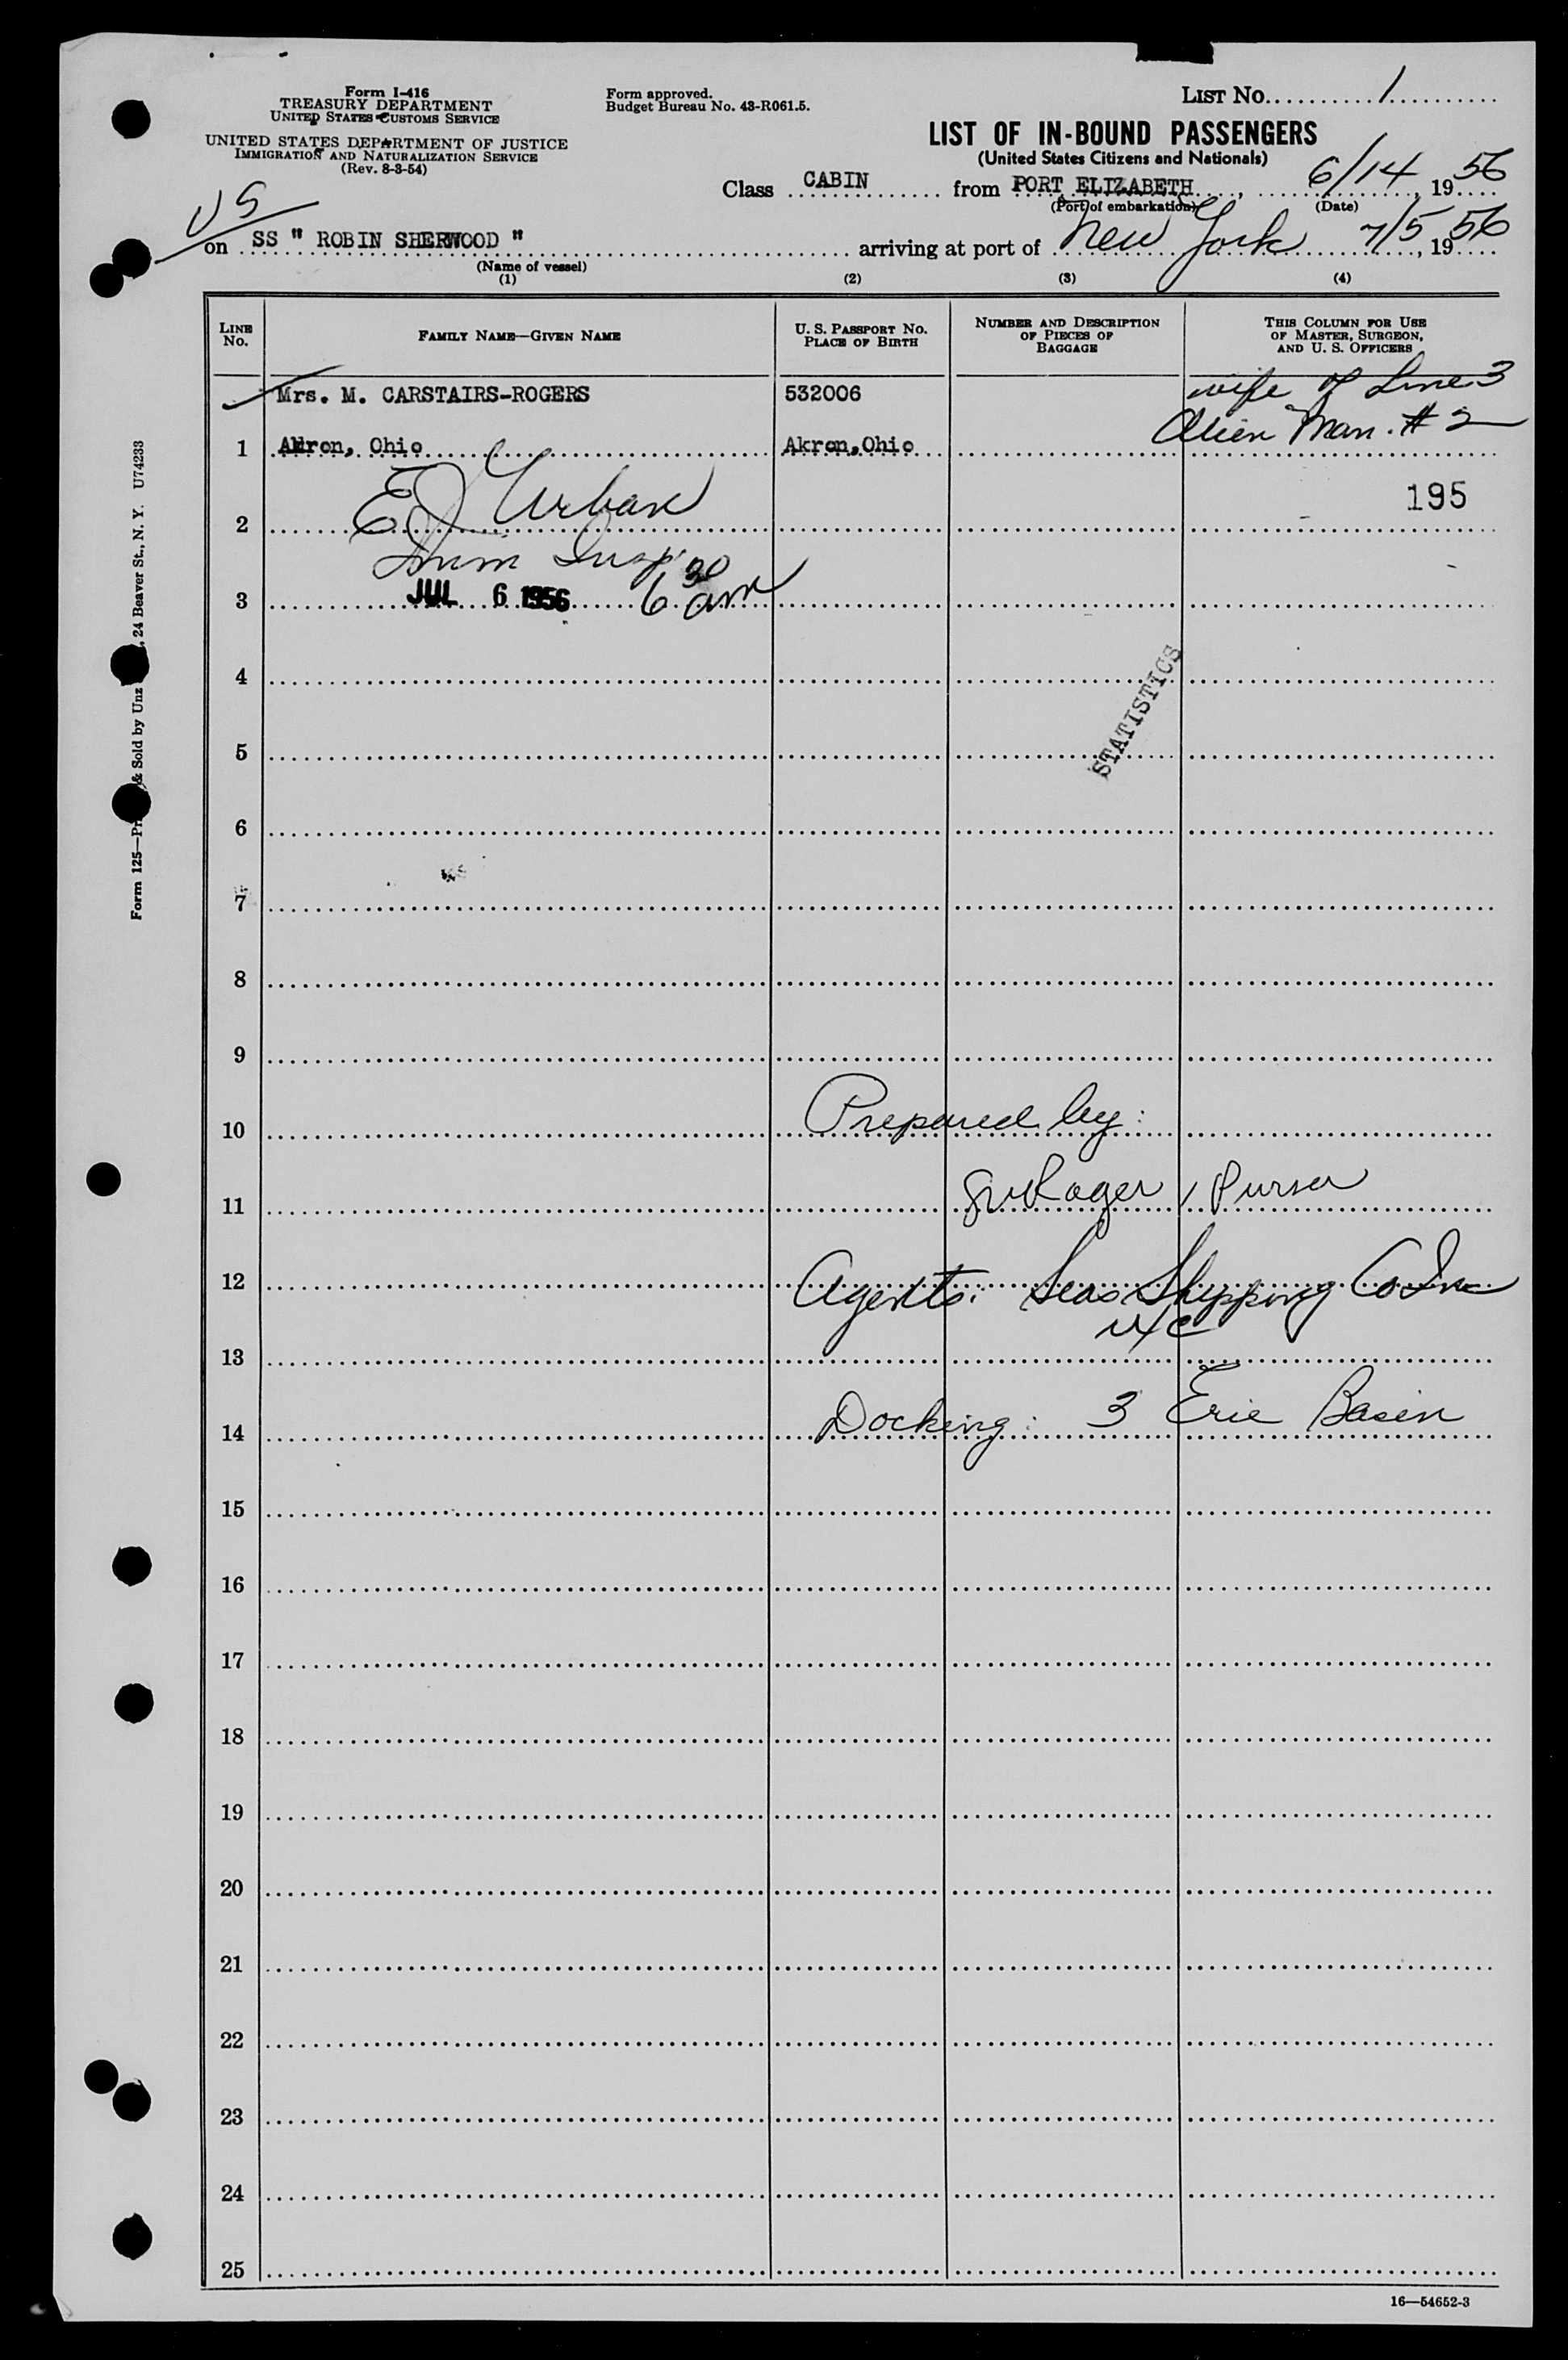 Form I-416
TREASURY DEPARTMENT
UNITED STATES CUSTOMS SERVICE
UNITED STATES DEPARTMENT OF JUSTICE
IMMIGRATION AND NATURALIZATION SERVICE
(Rev. 8-3-54)
Form approved.
Budget Bureau No. 43-R061.5.
LIST No. 1
LIST OF IN-BOUND PASSENGERS
(United States Citizens and Nationals)
Class CABIN from PORT ELIZABETH, 6/14, 1956
(Port of embarkation) (Date)
US
on SS " ROBIN SHERWOOD " arriving at port of New York 7/5, 1956
(Name of vessel)
(1) (2) (3) (4)
LINE No.
FAMILY NAME—GIVEN NAME
U. S. PASSPORT NO. PLACE OF BIRTH
NUMBER AND DESCRIPTION OF PIECES OF BAGGAGE
THIS COLUMN FOR USE OF MASTER, SURGEON, AND U. S. OFFICERS
Mrs. M. CARSTAIRS-ROGERS 532006 wife of Line 3
1 Akron, Ohio Akron,Ohio Alien Man. # 2
195
2 EJ Urban
Imm Insp
3 JUL 6 1956 6 30 am
4
STATISTICS
5
6
7
8
9
10 Prepared by:
11 Purser
12 Agents: Seas Shipping Co Inc
13
14 Docking: 3 Erie Basin
15
16
17
18
19
20
21
22
23
24
25
16—54652-3
Form 125— & Sold by Unz , 24 Beaver St., N. Y. U74233